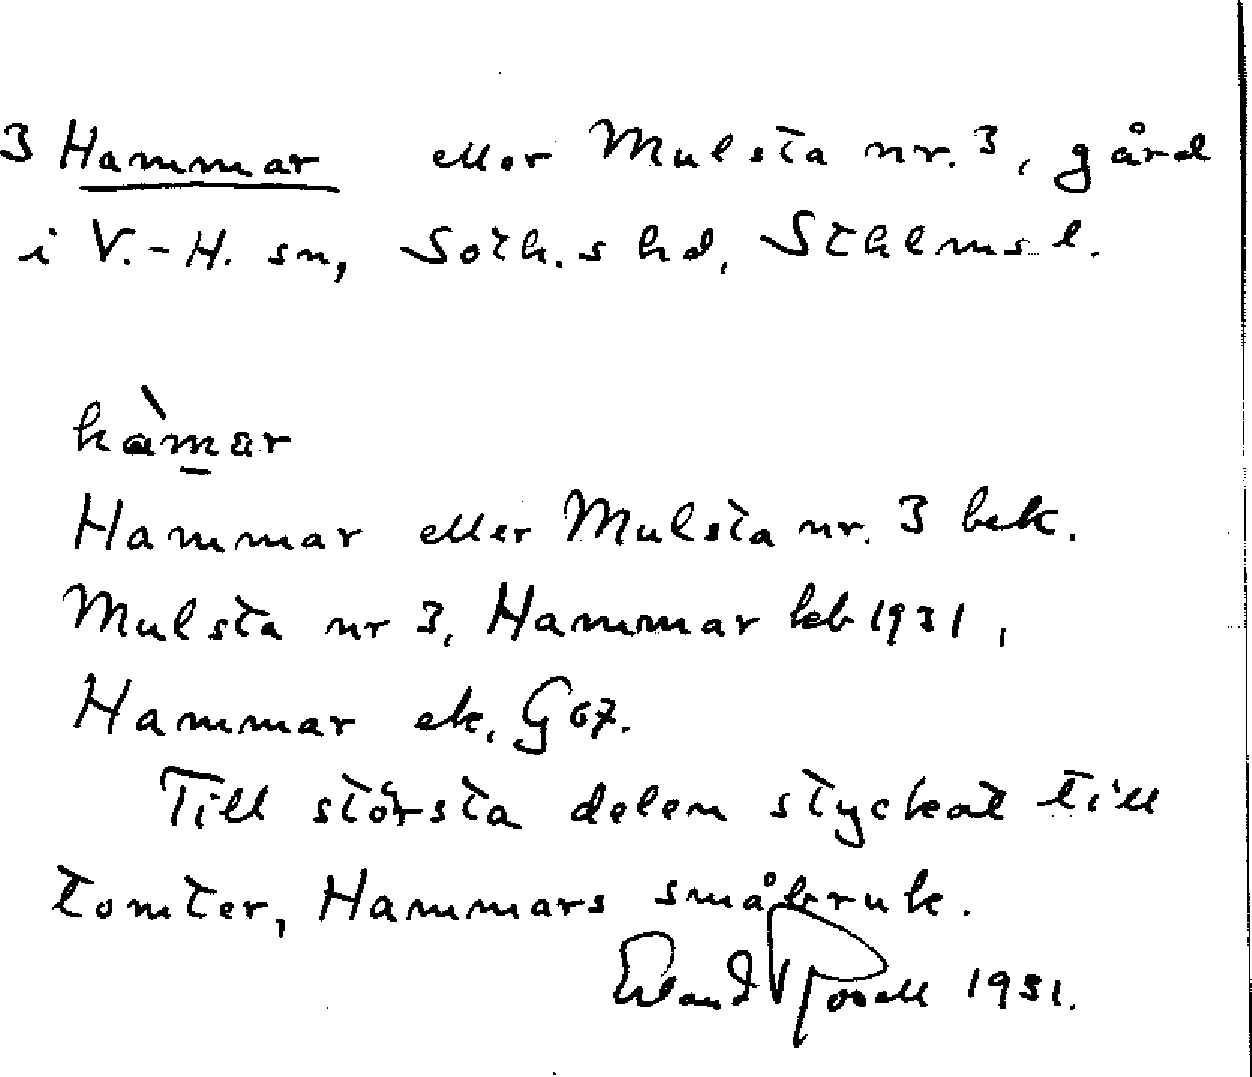 3 Hammar eller Mulsta nr. 3, gård
i V.-H. sn, Soth.s hd, Sthlms l.
hàmar
Hammar eller Mulsta nr. 3 bek.
Mulsta nr 3, Hammar leb 1931,
Hammar ek. G 67.
Till största delen styckat till
tomter, Hammars småbruk.
Erland Rosell 1951.